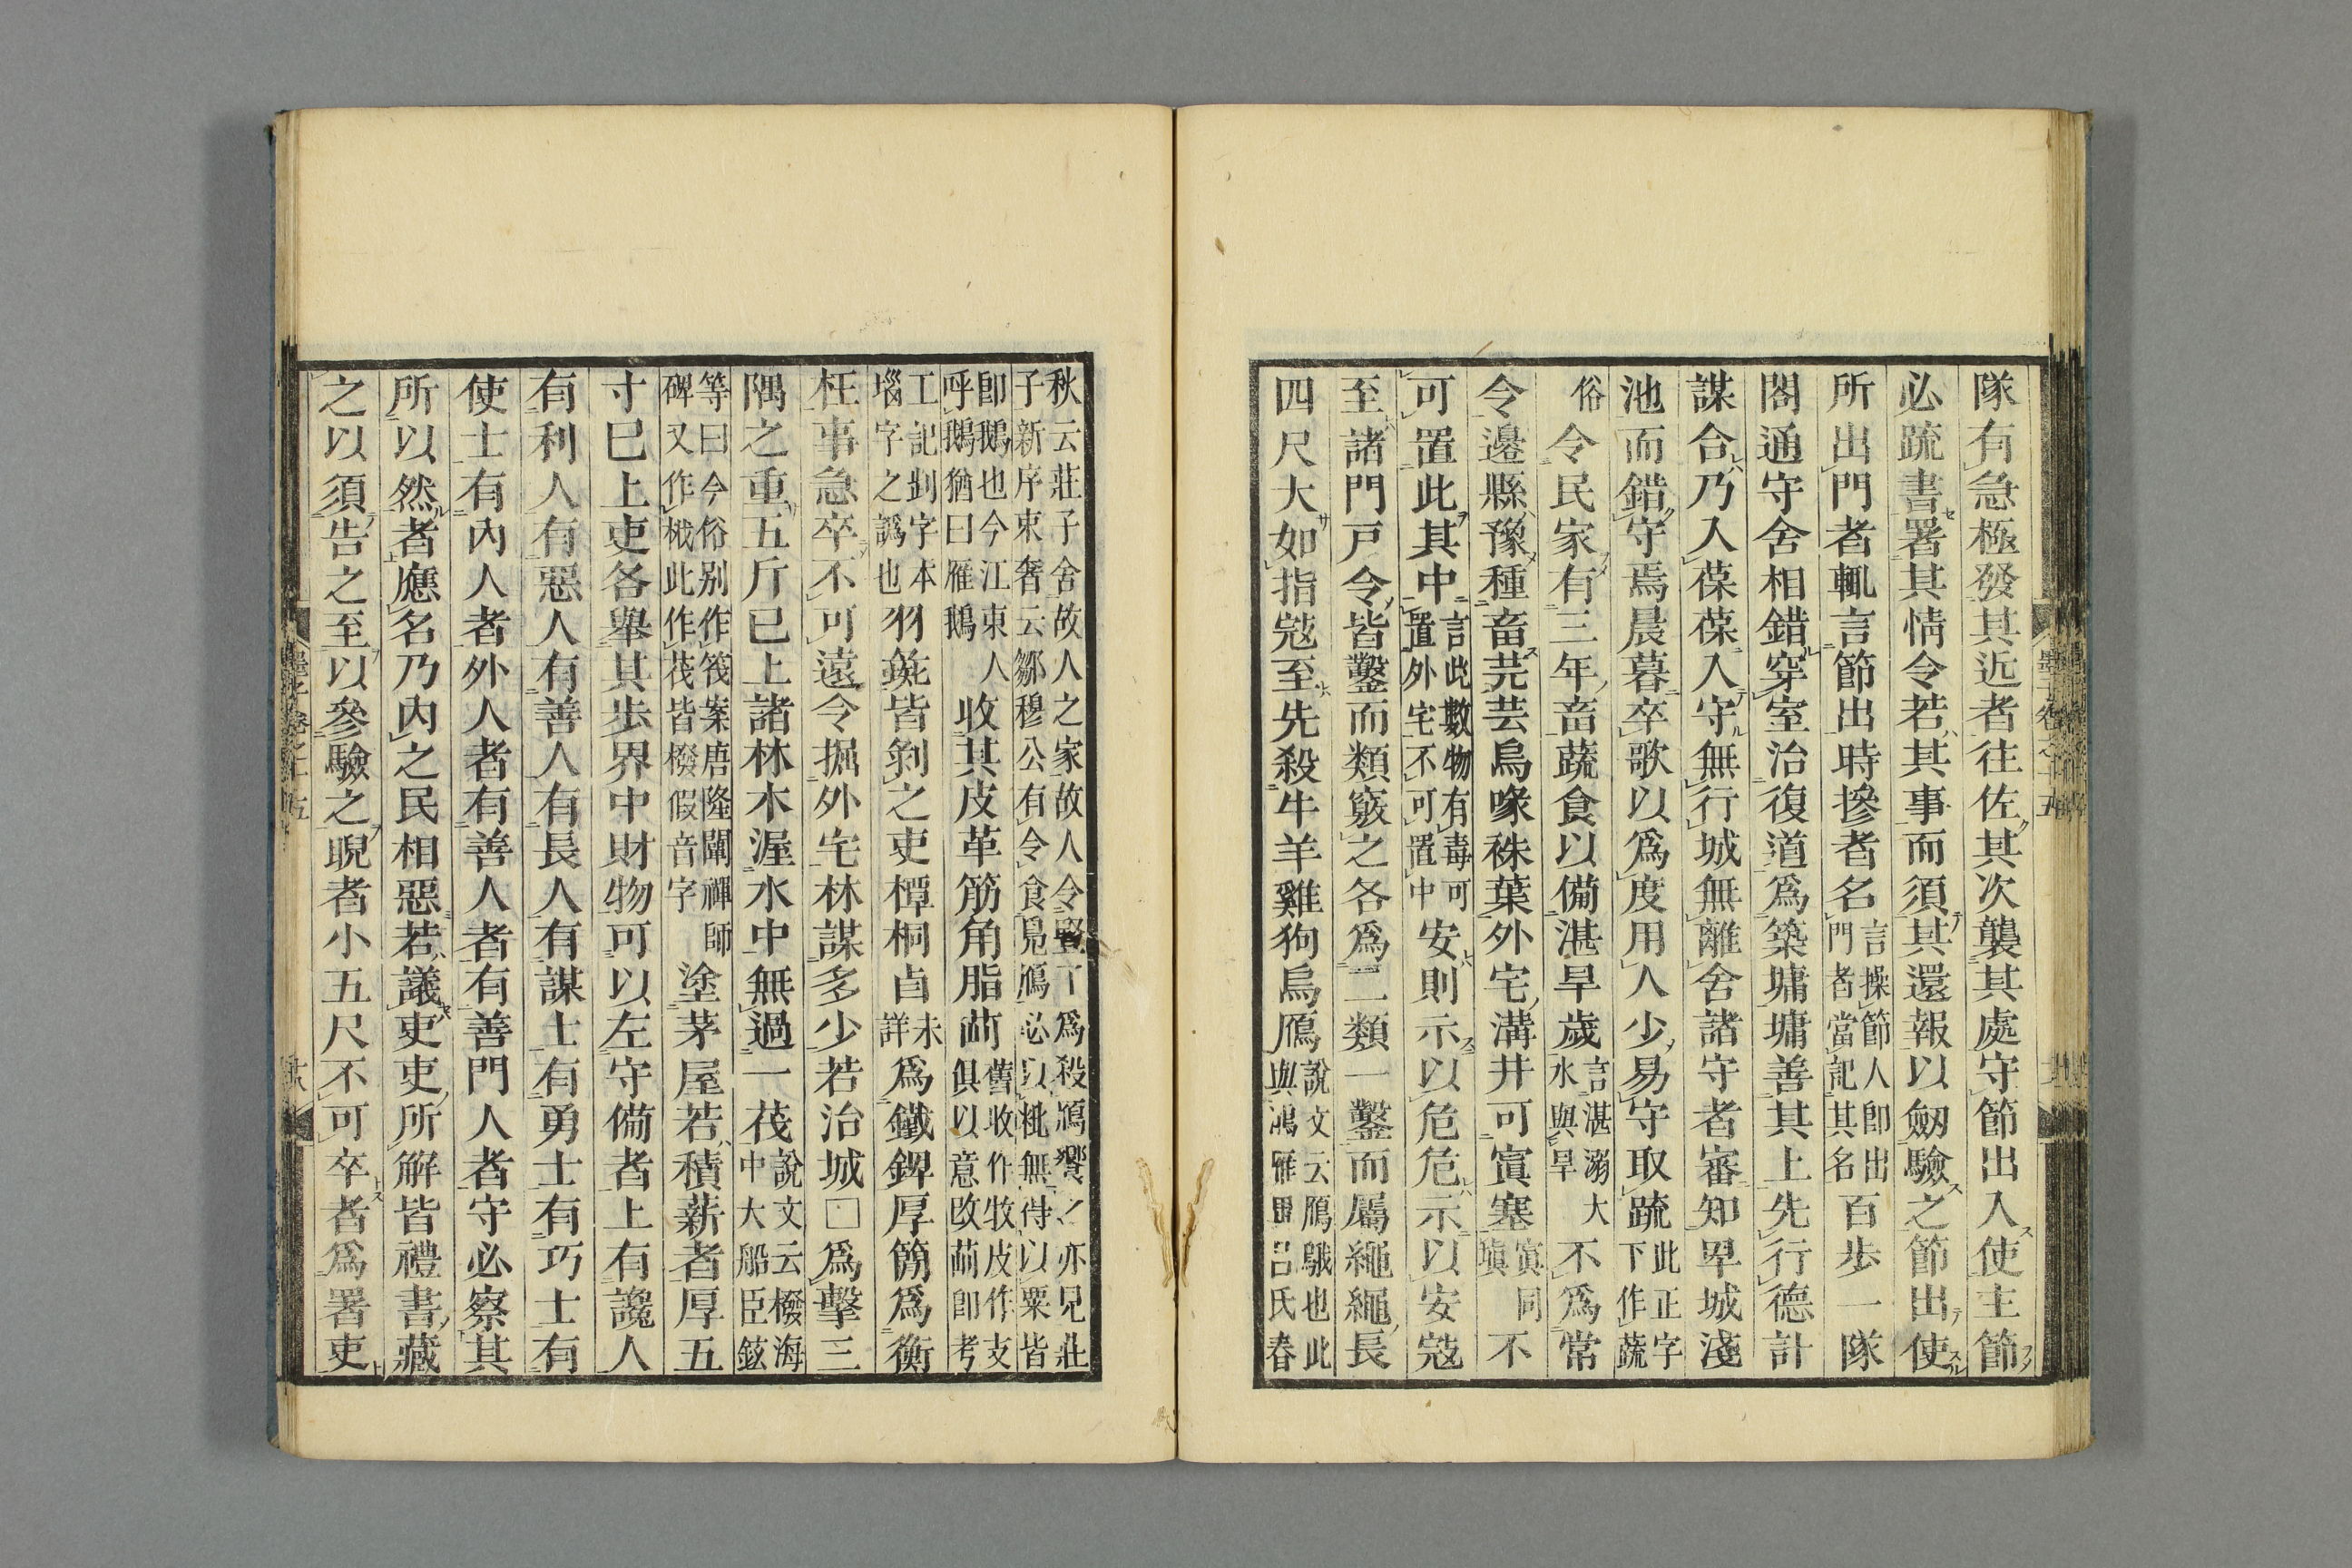 隊有急極發其近者往佐其次襲其處守節出入使主節
必疏書署其情令若其事而須其還報以劒驗之節出使
所出門者輒言節出時摻者名言操節人卽出門者當記其名百步一隊
閤通守舍相錯穿室治復道爲築墉墉善其上先行德計
謀合乃入葆葆入守無行城無離舍諸守者審知卑城淺
池而錯守焉晨暮卒歌以爲度用人少易守取疏此正字下作蔬
俗令民家有三年畜蔬食以備湛旱歲言湛溺大水與旱不爲常
令邊縣豫種畜芫芸烏喙袾葉外宅溝井可寘塞寘同塡不
可置此其中言此數物有毒可置外宅不可置中安則示以危危示以安寇
至諸門戸令皆鑿而類竅之各爲二類一鑿而屬繩繩長
四尺大如指寇至先殺牛羊雞狗烏鴈說文云鴈䳘也此與鴻雁異呂氏春
秋云莊子舍故人之家故人令豎子爲殺鴈饗之亦見莊子新序束奢云鄒穆公有令食鳧鴈必以秕無得以粟皆
卽鵝也今江東人呼鵝猶曰雁鵝收其皮革筋角脂䓣舊收作牧皮作支俱以意改䓣卽考
工記剒字本堖字之譌也羽㲋皆剝之吏橝桐卣未詳爲鐵錍厚簡爲衡
枉事急卒不可遠令掘外宅林謀多少若治城□爲擊三
隅之重五斤已上諸林木渥水中無過一茷說文云橃海中大船臣鉉
等曰今俗别作筏案唐隆闡禪師碑又作栰此作茷皆橃假音字塗茅屋若積薪者厚五
寸已上吏各舉其步界中財物可以左守備者上有讒人
有利人有惡人有善人有長人有謀士有勇士有巧士有
使士有內人者外人者有善人者有善門人者守必察其
所以然者應名乃內之民相惡若議吏吏所解皆禮書藏
之以須告之至以參驗之睨者小五尺不可卒者爲署吏